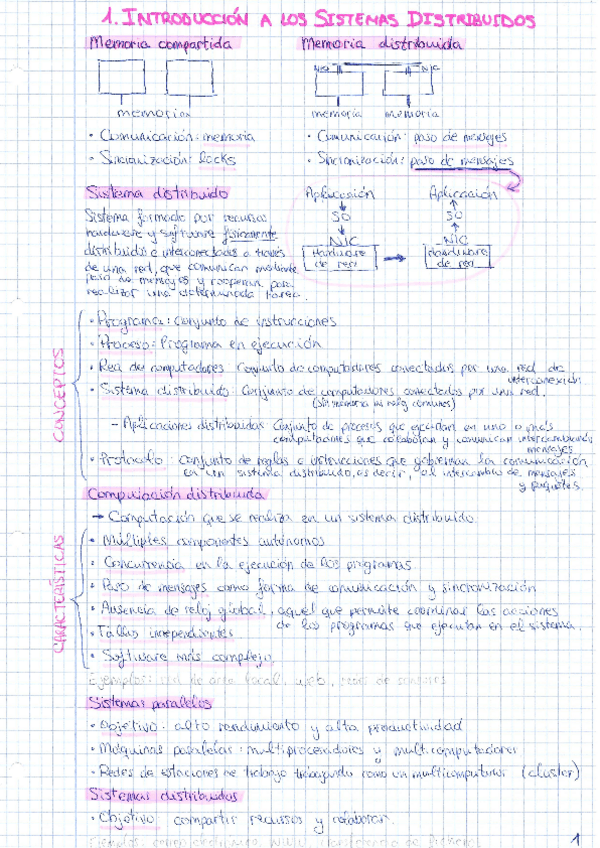 1. INTRODUCCIÓN A LOS SISTEMAS DISTRIBUIDOS
Memoria compartida
Memoria distribuida
NIC NIC
memoria
memoria memoria
• Comunicación: memoria
• Comunicación: paso de mensajes
• Sincronización: locks
• Sincronización: paso de mensajes
Sistema distribuido
Aplicación Aplicación
SO SO
NIC NIC
Hardware de red
Hardware de red
Sistema formado por recursos
hardware y software físicamente
distribuidos e interconectados a través
de una red, que comunican mediante
paso de mensajes y cooperan para
realizar una determinada tarea.
CONCEPTOS
• Programa: Conjunto de instrucciones
• Proceso: Programa en ejecución
• Red de computadores: Conjunto de computadores conectados por una red de
interconexión.
• Sistema distribuido: Conjunto de computadores conectados por una red.
(sin memoria ni reloj comunes)
– Aplicaciones distribuidas: Conjunto de procesos que ejecutan en uno o más
computadores que colaboran y comunican intercambiando
mensajes
• Protocolo: Conjunto de reglas e instrucciones que gobiernan la comunicación
en un sistema distribuido, es decir, el intercambio de mensajes
y paquetes.
Computación distribuida
→ Computación que se realiza en un sistema distribuido.
CARACTERÍSTICAS
• Múltiples componentes autónomos
• Concurrencia en la ejecución de los programas.
• Paso de mensajes como forma de comunicación y sincronización
• Ausencia de reloj global, aquel que permite coordinar las acciones
de los programas que ejecutan en el sistema.
• Fallos independientes.
• Software más complejo.
Ejemplos: red de área local, web, redes de sensores
Sistemas paralelos
• Objetivo: alto rendimiento y alta productividad
• Máquinas paralelas: multiprocesadores y multicomputador
• Redes de estaciones de trabajo trabajando como un multicomputador (cluster)
Sistemas distribuidos
• Objetivo: compartir recursos y colaborar.
1